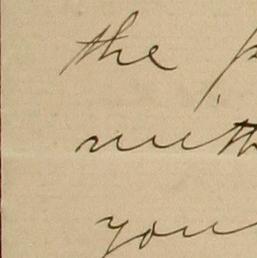 the
with
you